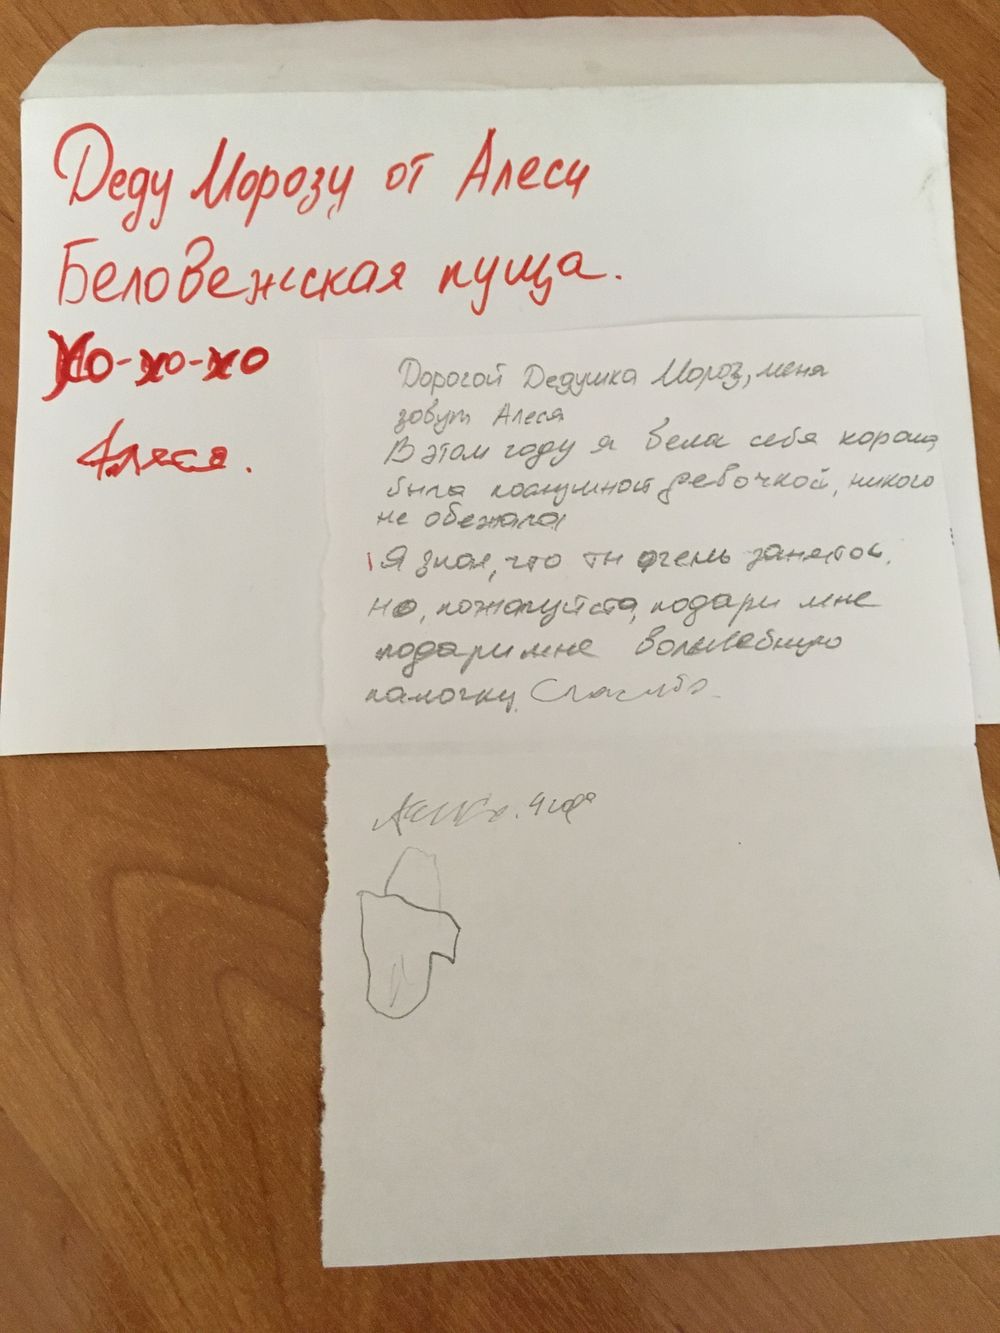 Деду Морозу от Алеси
Беловежская пуща.
Хо-хо-хо
Алеся.
Дорогой Дедушка Мороз, меня
зовут Алеся
В этом году я вела себя хорошо,
была послушной девочкой, никого
не обежала
Я знаю, что ты очень занятой,
но, пожалуйста, подари мне
подари мне волшебную
палочку. Спасибо.
4 года